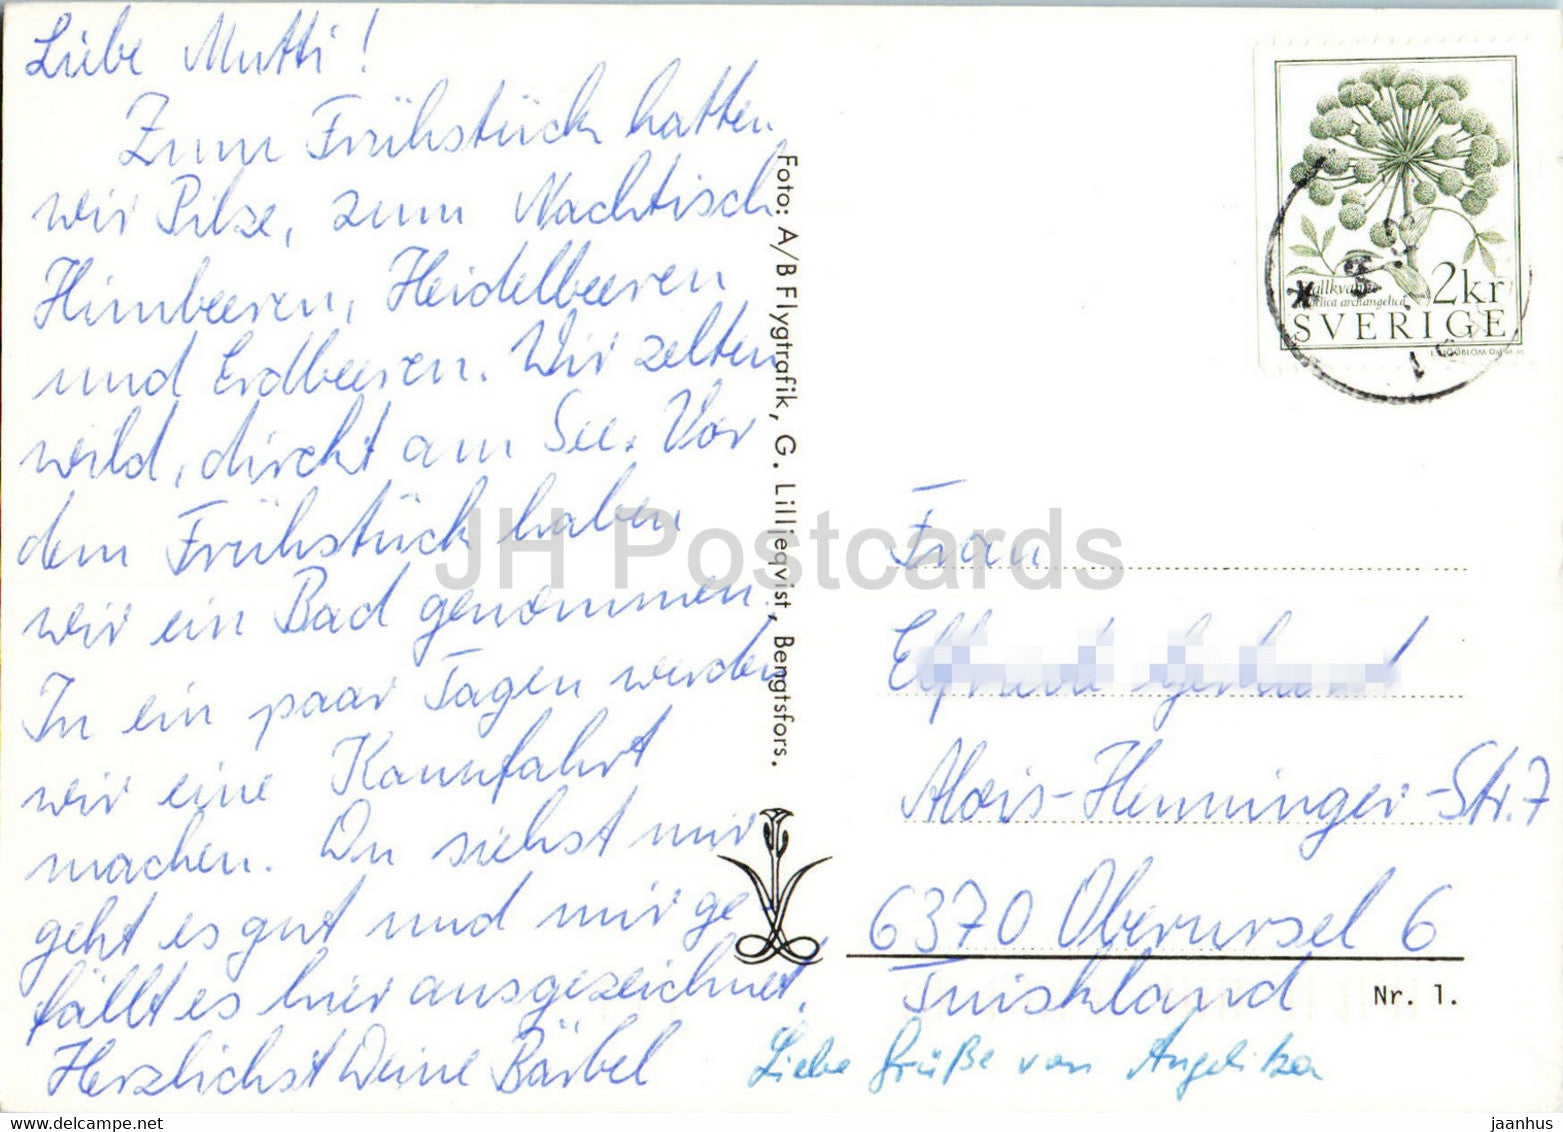 Liebe Mutti!
Zum Frühstück hatten
wir Pilze, zum Nachtisch
Himbeeren, Heidelbeeren
und Erdbeeren. Wir zelten
wild, direkt am See. Vor
dem Frühstück haben
wir ein Bad genommen.
In ein paar Tagen werden
wir eine Kanufahrt
machen. Du siehst mir
geht es gut und mir ge
fällt es hier ausgezeichnet.
Herzlichst Deine Bärbel
Liebe Grüße von Angelika
Foto: A/B Flygtrafik, G. Lilljeqvist, Bengtsfors.
2kr
archangelica
SVERIGE
Frau
Alois-Henninger-Str. 7
6370 Oberursel 6
Tuiskland
Nr. 1.
JH Postcards
delcampe.net
jaanhus